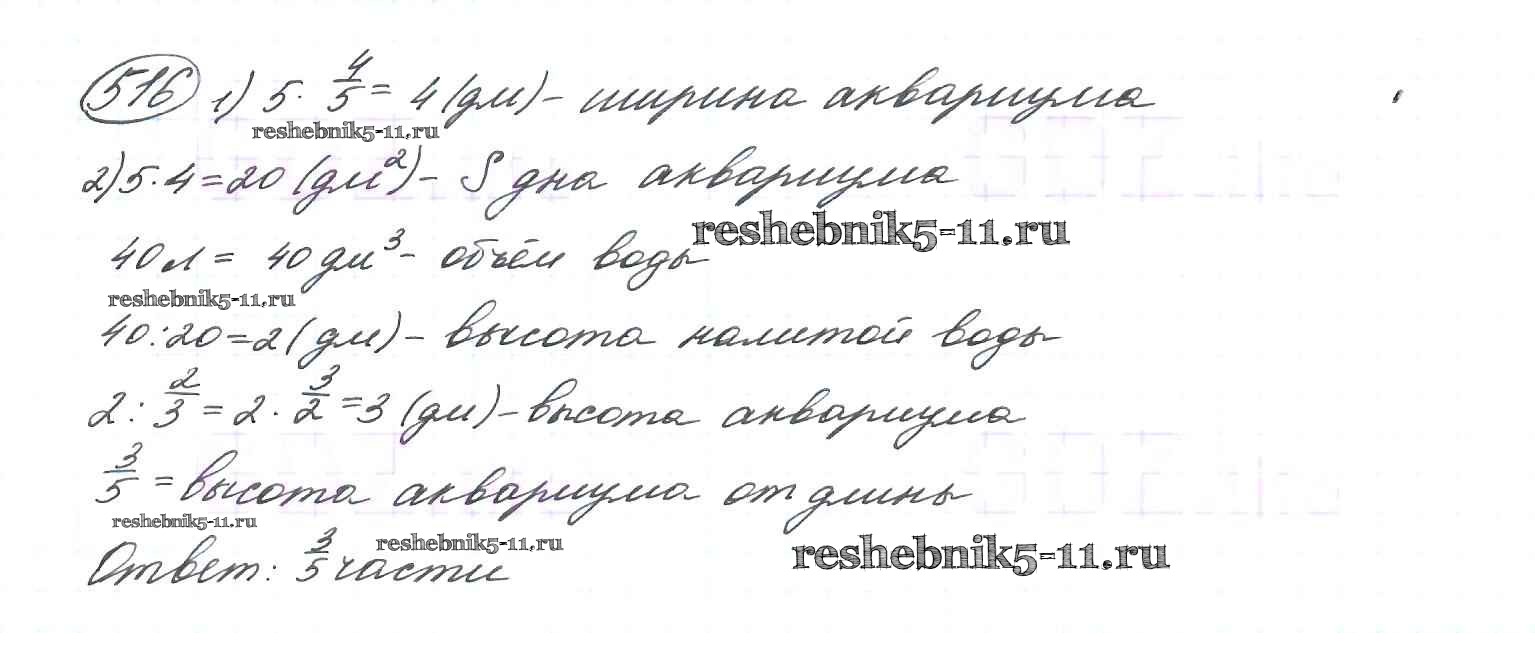 516 1) 5 · 4/5 = 4 (дм) - ширина аквариума
reshebnik5-11.ru
2) 5 · 4 = 20 (дм²) - S дна аквариума
reshebnik5-11.ru
40 л = 40 дм³ - объём воды
reshebnik5-11.ru
40 : 20 = 2 (дм) - высота налитой воды
2 : 2/3 = 2 · 3/2 = 3 (дм) - высота аквариума
3/5 = высота аквариума от длины
reshebnik5-11.ru
reshebnik5-11.ru
reshebnik5-11.ru
Ответ: 3/5 части